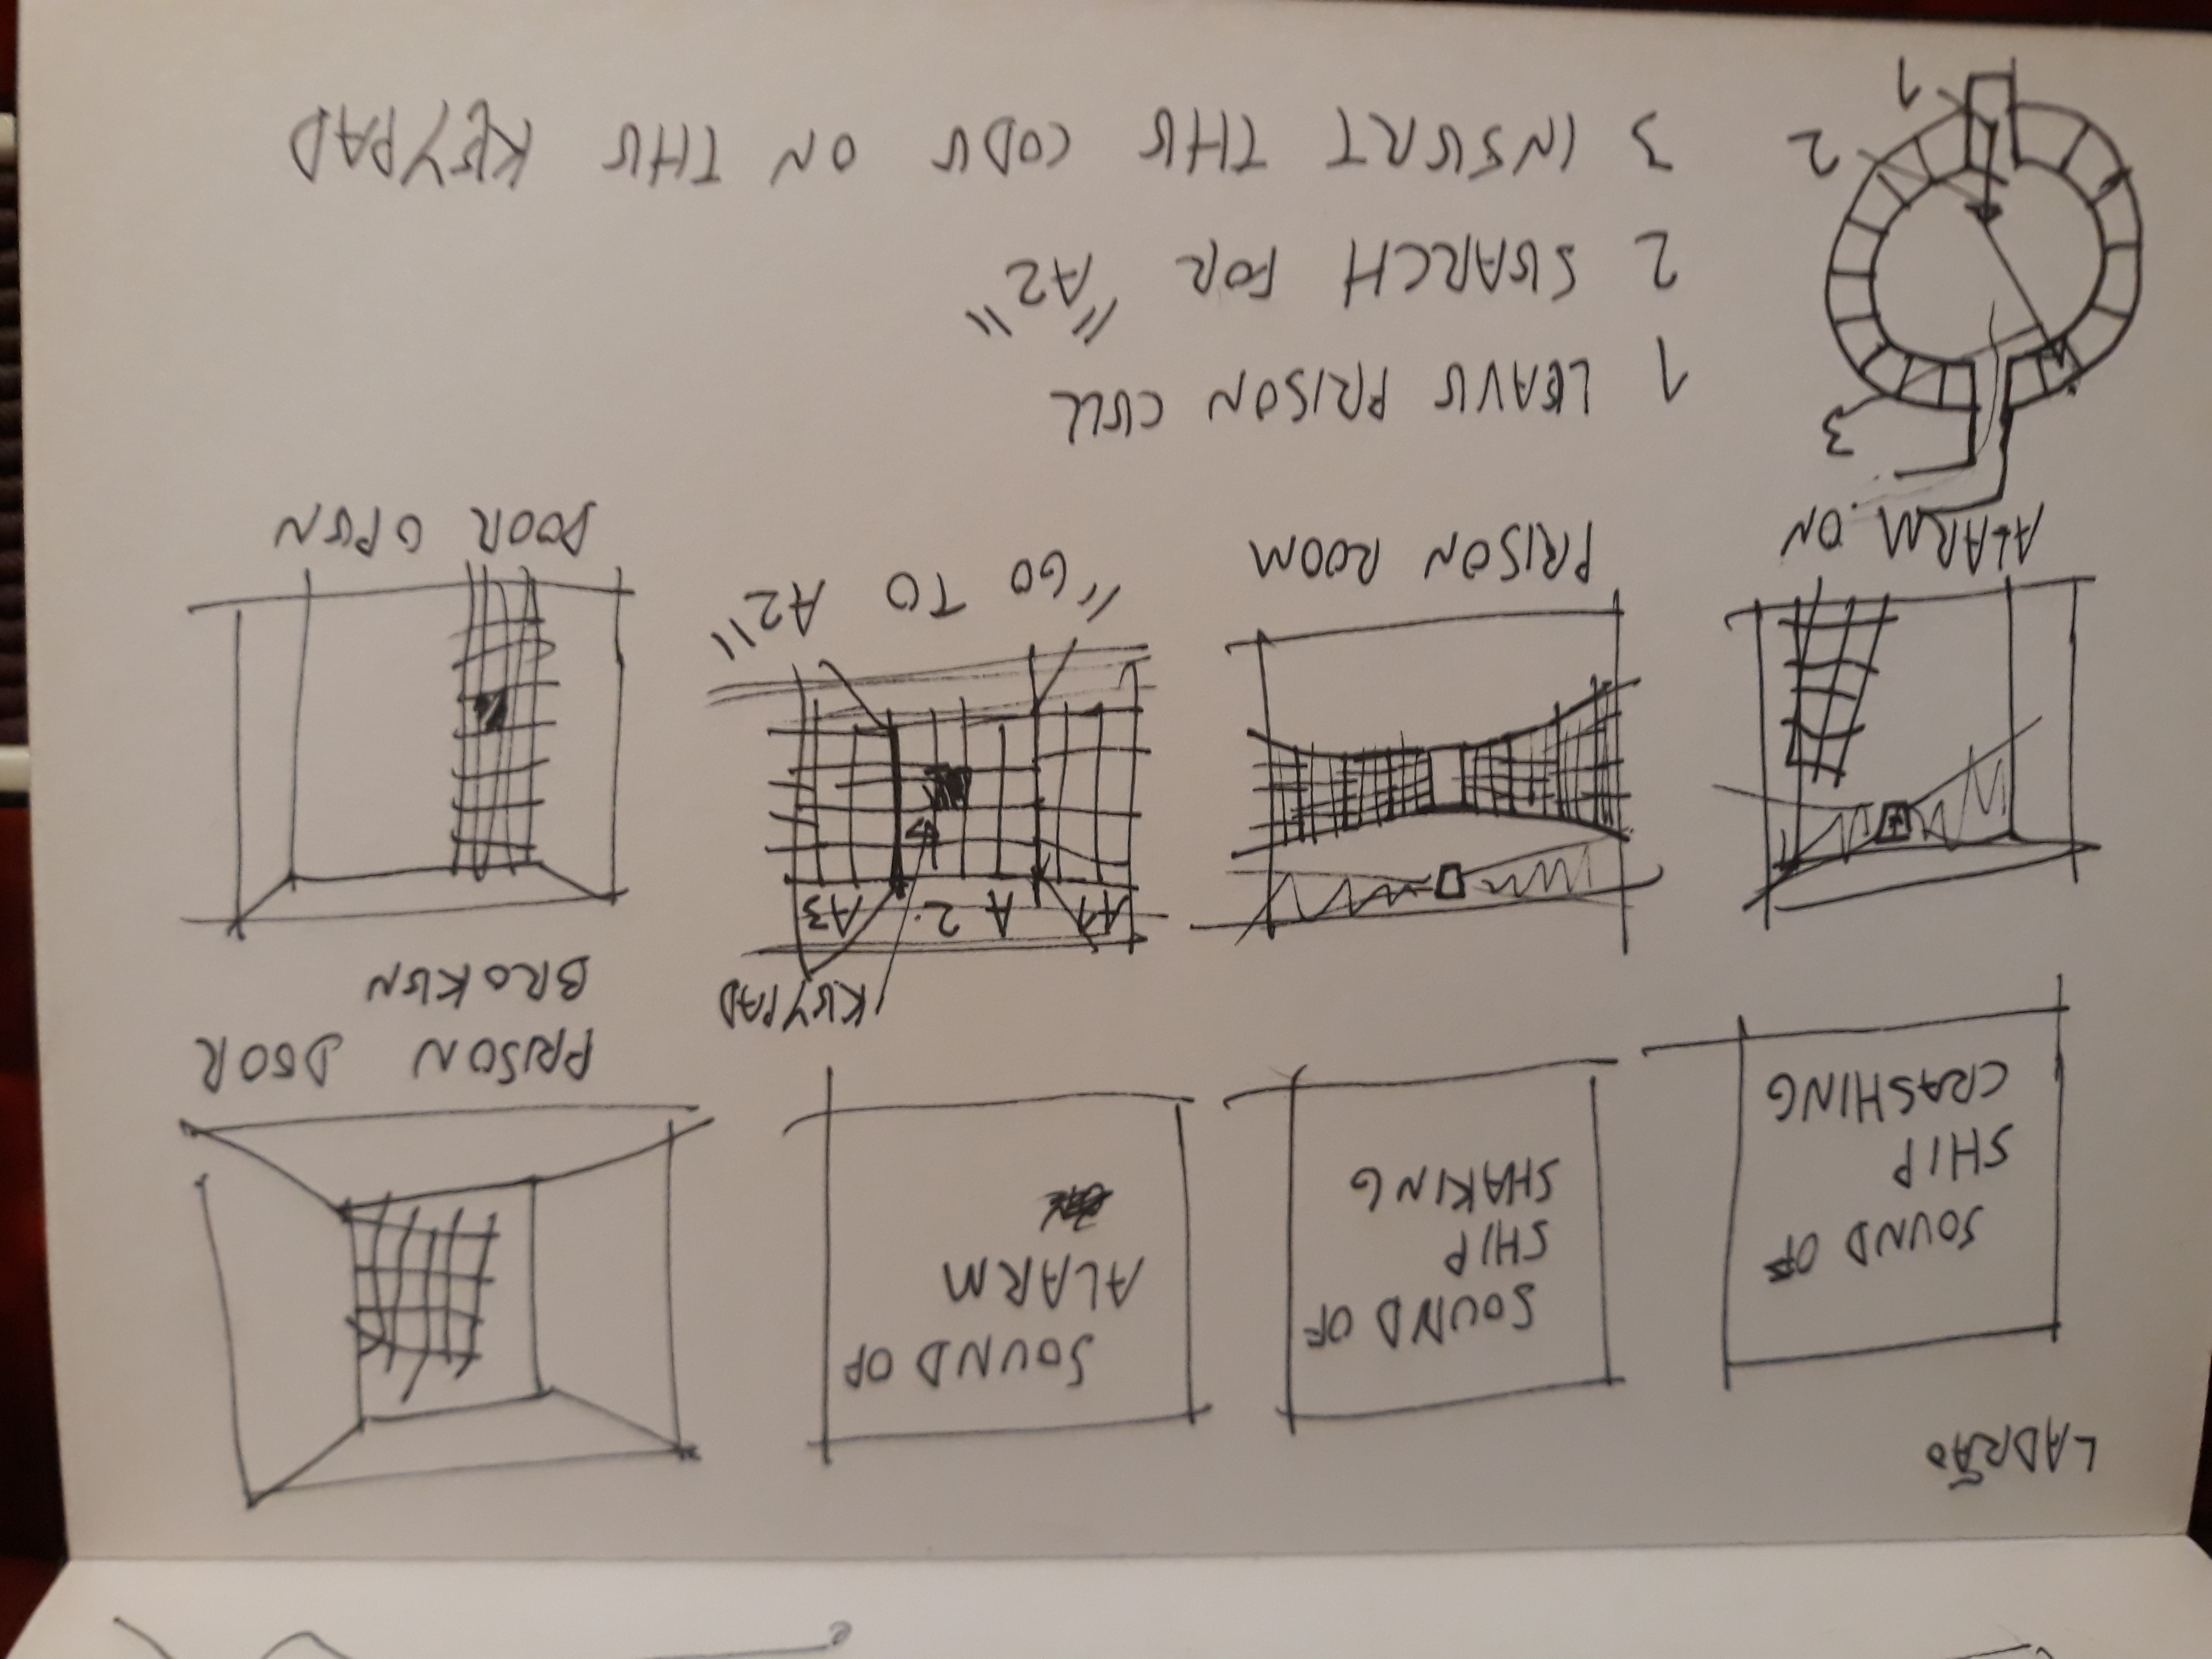 LADRÃO
SOUND OF
SHIP
CRASHING
SOUND OF
SHIP
SHAKING
SOUND OF
ALARM
PRISON DOOR
BROKEN
ALARM ON
PRISON ROOM
KEYPAD
A1 A2 A3
"GO TO A2"
DOOR OPEN
3
2
1
1 LEAVE PRISON CELL
2 SEARCH FOR "A2"
3 INSERT THE CODE ON THE KEYPAD